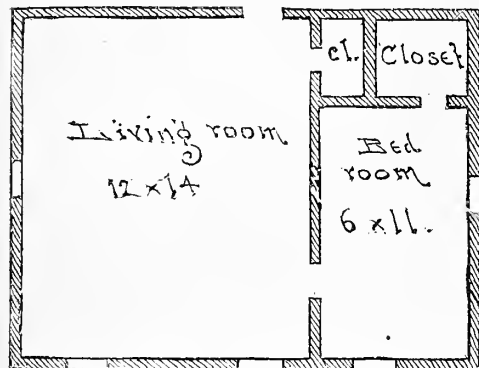 Living room
12 x 14
cl.
Closet
Bed
room
6 x 11.